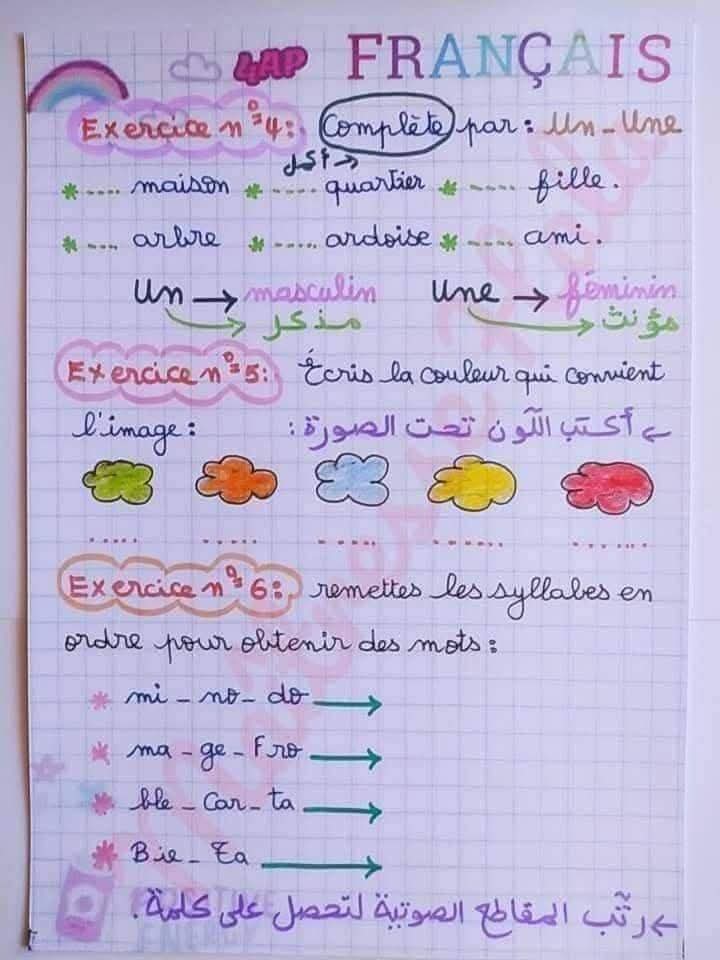 4AP FRANÇAIS
Exercice n°4: Complète par: Un - Une
أكمل
* .... maison * .... quartier * .... fille.
* .... arbre * .... ardoise * .... ami.
Un → masculin Une → féminin
مذكر مؤنث
Exercice n°5: Écris la couleur qui convient
l'image: أكتب اللّون تحت الصورة:
..... ..... ..... ..... .....
Exercice n°6: remettes les syllabes en
ordre pour obtenir des mots:
* mi - no - do →
* ma - ge - Fro →
* ble - Car - ta →
* Bie - Ta →
رتّب المقاطع الصوتية لتحصل على كلمة.